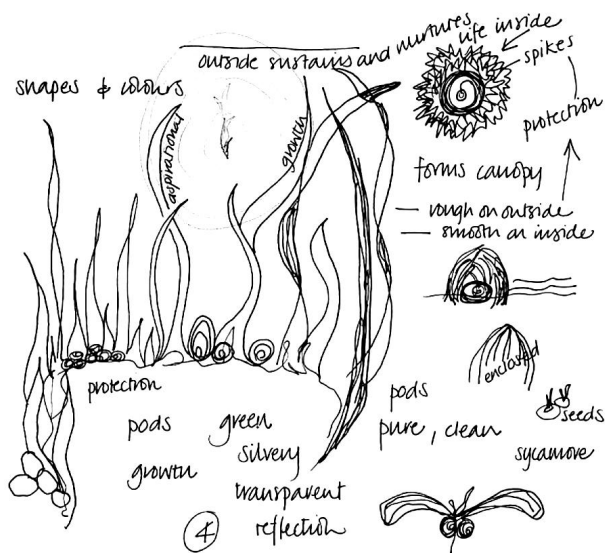 outside sustains and nurtures
life inside
spikes
shapes & colours
protection
aspirational
growth
forms canopy
— rough on outside
— smooth on inside
enclosed
protection
pods
growth
green
silvery
transparent
reflection
pods
pure, clean
seeds
sycamore
4